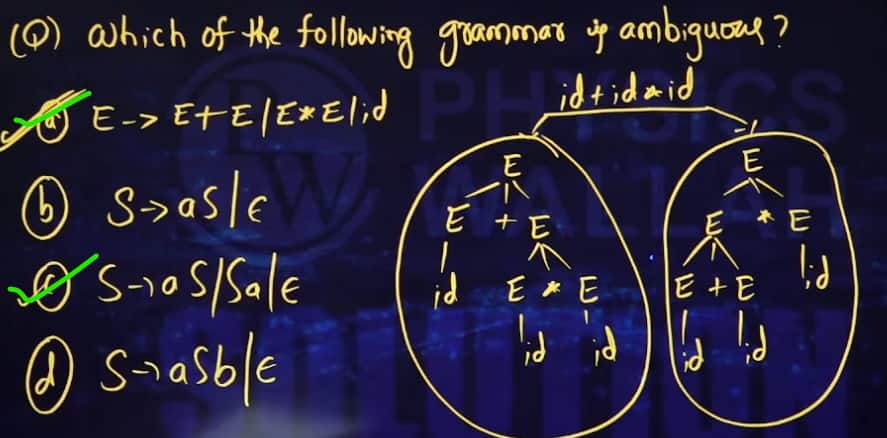 (Q) Which of the following grammar is ambiguous?
id+id*id
(a) E -> E+E | E*E | id
(b) S -> aS | ε
(c) S -> aS | Sa | ε
(d) S -> aSb | ε
E
E + E
id E * E
id id
E
E * E
E + E id
id id
PHYSICS
WALLAH
SOLUTION